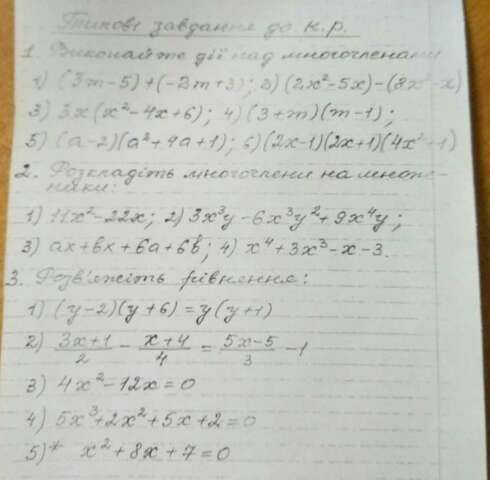 Типові завдання до к.р.
1. Виконайте дії над многочленами
1) (3m-5)+(-2m+3); 2) (2x²-5x)-(8x²-x)
3) 3x(x²-4x+6); 4) (3+m)(m-1);
5) (a-2)(a²+4a+1); 6) (2x-1)(2x+1)(4x²+1)
2. Розкладіть многочлени на множ-
ники:
1) 11x²-22x; 2) 3x³y-6x³y²+9x⁴y;
3) ax+bx+6a+6b; 4) x⁴+3x³-x-3.
3. Розв'яжіть рівняння:
1) (y-2)(y+6)=y(y+1)
2) (3x+1)/2 - (x+4)/4 = (5x-5)/3 -1
3) 4x²-12x=0
4) 5x³+2x²+5x+2=0
5)* x²+8x+7=0